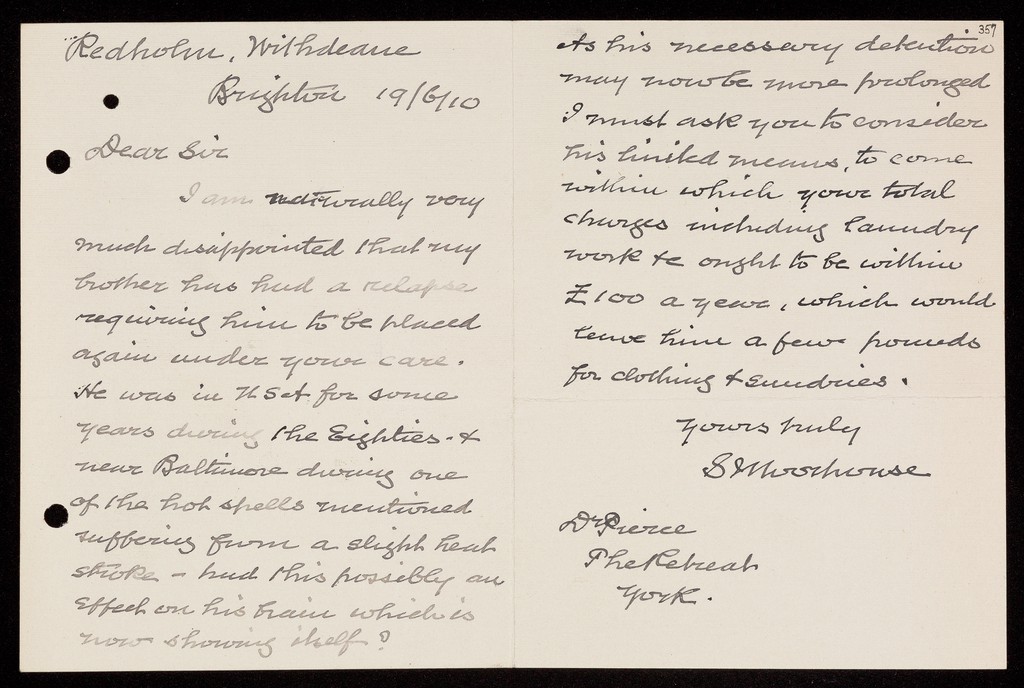 Redholm, Withdeane
Brighton 19/6/10
Dear Sir
I am naturally very
much disappointed that my
brother has had a relapse
requiring him to be placed
again under your care.
He was in USA for some
years during the Eighties - &
near Baltimore during one
of the hot spells mentioned
suffering from a slight heat
stroke - had this possibly an
effect on his brain which is
now showing itself?
357
As his necessary detention
may now be more prolonged
I must ask you to consider
his limited means, to come
within which your total
charges including laundry
work &c ought to be within
£100 a year, which would
leave him a few pounds
for clothing & sundries.
Yours truly
Moorhouse
Dr Pierce
The Retreat
York.